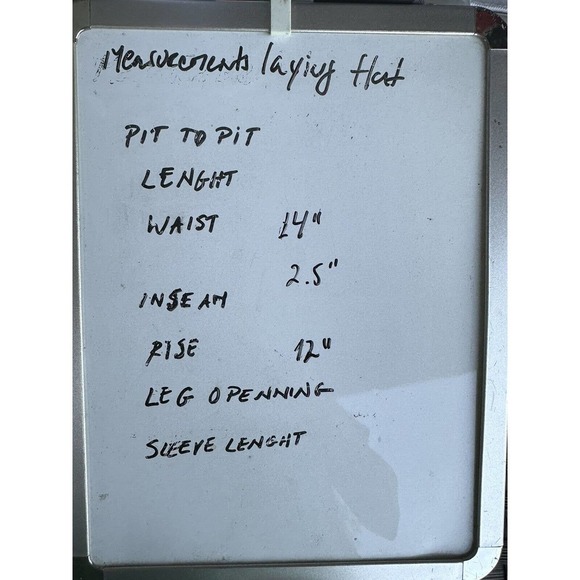 Measurements laying flat
PIT TO PIT
LENGHT
WAIST 14"
2.5"
INSEAM
RISE 12"
LEG OPENNING
SLEEVE LENGHT